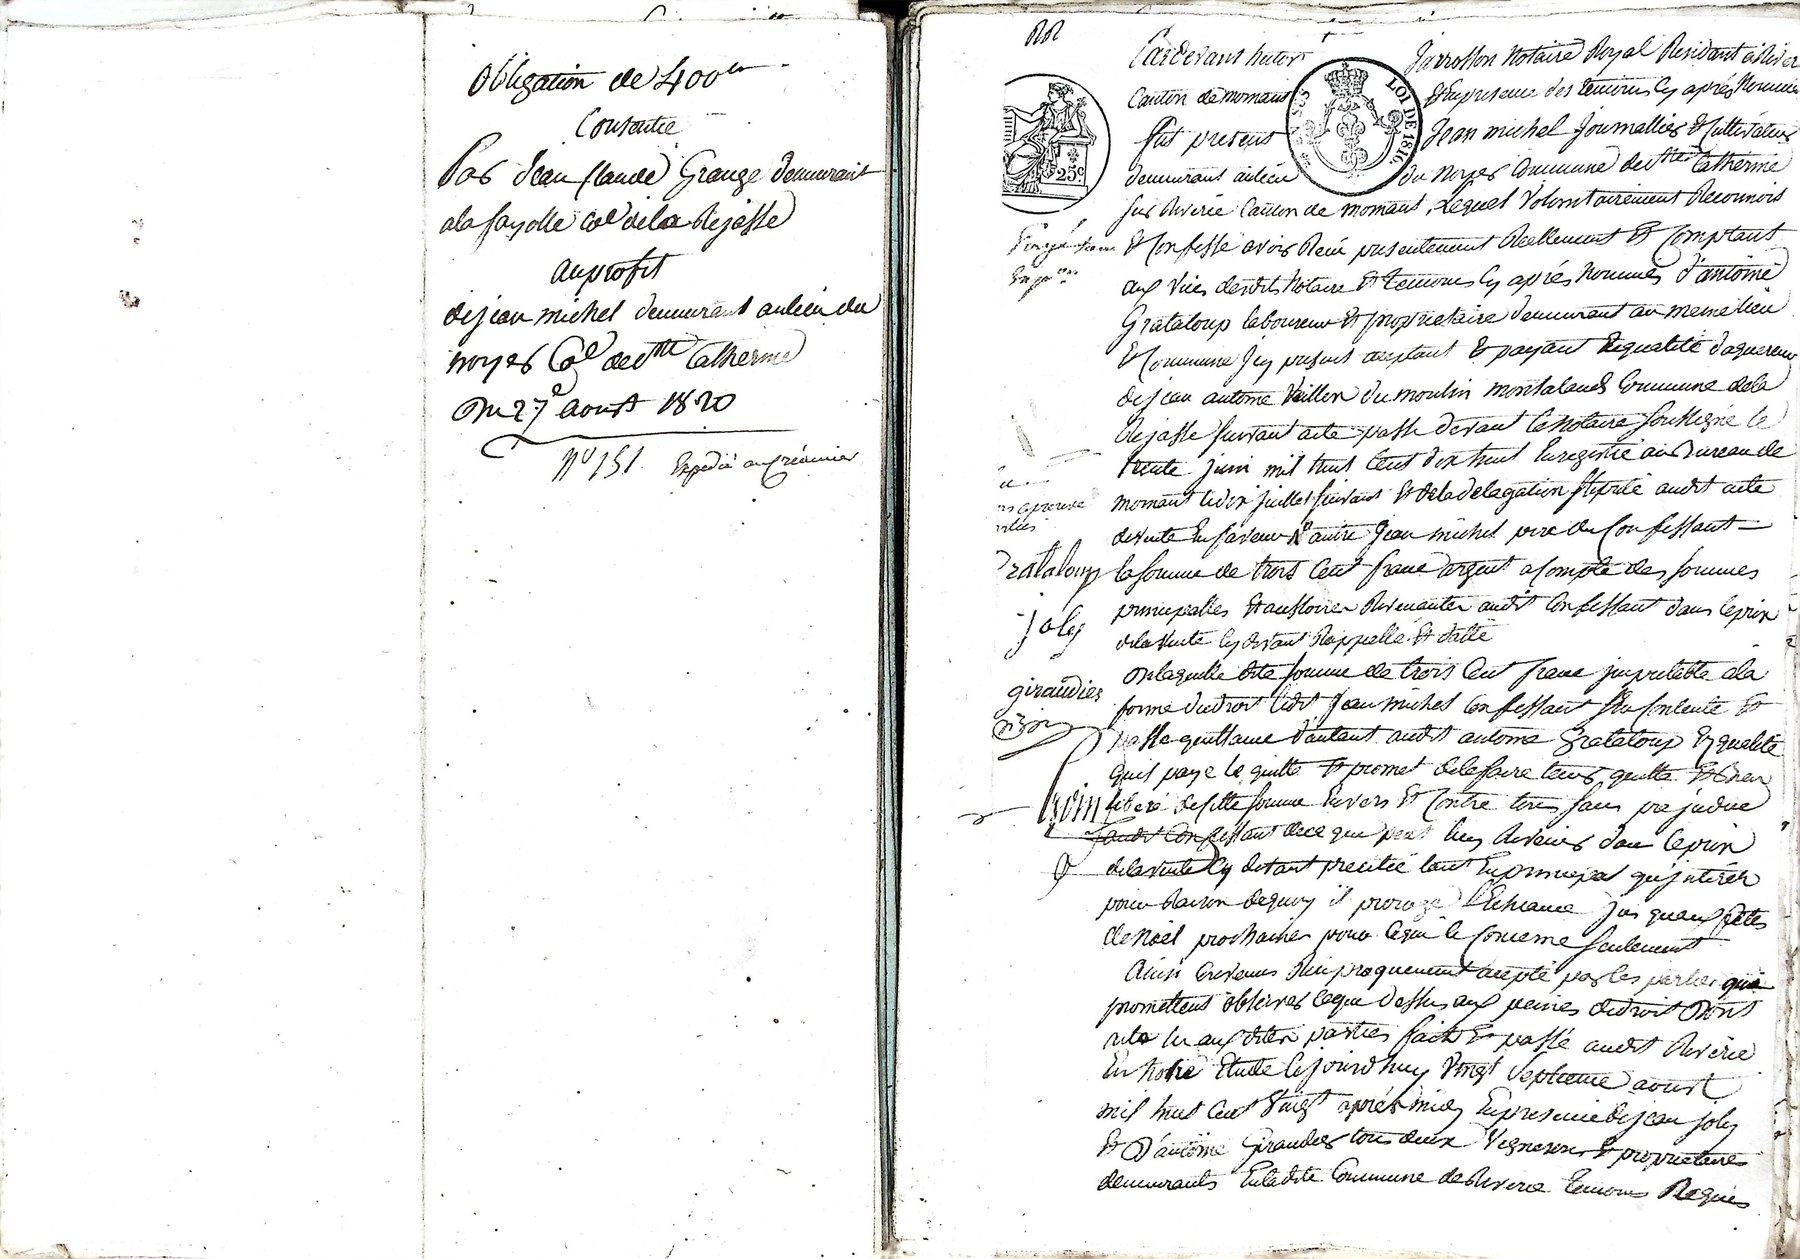 Obligation de 400 fr
Consentie
Par Jean Claude Grange demeurant
a la fayolle Cne de la Rejasse
au profit
de jean michel demeurant au lieu du
noyer Cne de Ste Catherine
Du 27e aoust 1820
No 151. Expedié au Créancier
Pardevant hutor Jarrosson Notaire Royal Residant a Riverie
Canton de mornant Et en presence des temoins cy aprés Nommés
fut present Jean michel Journallier & Cultivateur
demeurant au lieu du Noyer Commune de Ste Catherine
sur Riverie Canton de mornant, Lequel Volontairement Reconnois
LOI DE 1816
25c
& Confesse avoir Reçu presentement Reellement Et Comptant
aux vües desdits Notaire Et temoins cy aprés Nommés d'antoine
Grataloup laboureur Et proprietaire demeurant au meme lieu
& Commune Icy present aceptant & payant En qualité d'aquereur
de jean antoine du moulin montaland Commune de la
Rejasse suivant acte passé devant le Notaire soussigné le
trente juin mil huit Cent dix huit Enregistré au Bureau de
mornant le dix juillet suivant Et de la delegation stipulé audit acte
de vente En faveur d'autre Jean michel pere du Confessant
la somme de trois Cent franc argent a Compte des sommes
principalles Et accessoires Revenantes audit Confessant dans le prix
de la vente cy devant Rappellé Et datté
De laquelle dite somme de trois Cent franc imputable a la
forme du droit ledit Jean michel Confessant Contente Et
passe quittance d'autant audit antoine Grataloup En qualité
qu'il paye le quitte Et promet de le faire tenir quitte Et bien
liberé de cette somme Envers Et Contre tous sans prejudice
audit Confessant de ce que peut luy Revenir dans le prix
de la vente Cy devant precitée tant En principal qu'intérêts
pour Raison de quoy il proroge l'Echeance jus qu'aux fêtes
de Noël prochaines pour ce qui le Concerne seulement
Ainsi Convenus Reciproquement acepté par les parties qui
promettent observer ce que dessus aux peines de droit Dont
acte lu aux dites parties fait Et passé audit Riverie
En Notre Etude Cejourd'huy Vingt Septieme aoust
mil huit Cent Vingt aprés midy En presence de jean joly
Et D'antoine Giraudier tous deux Vignerons & proprietaires
demeurants En ladite Commune de Riverie temoins Requis
Grataloup
joly
giraudier